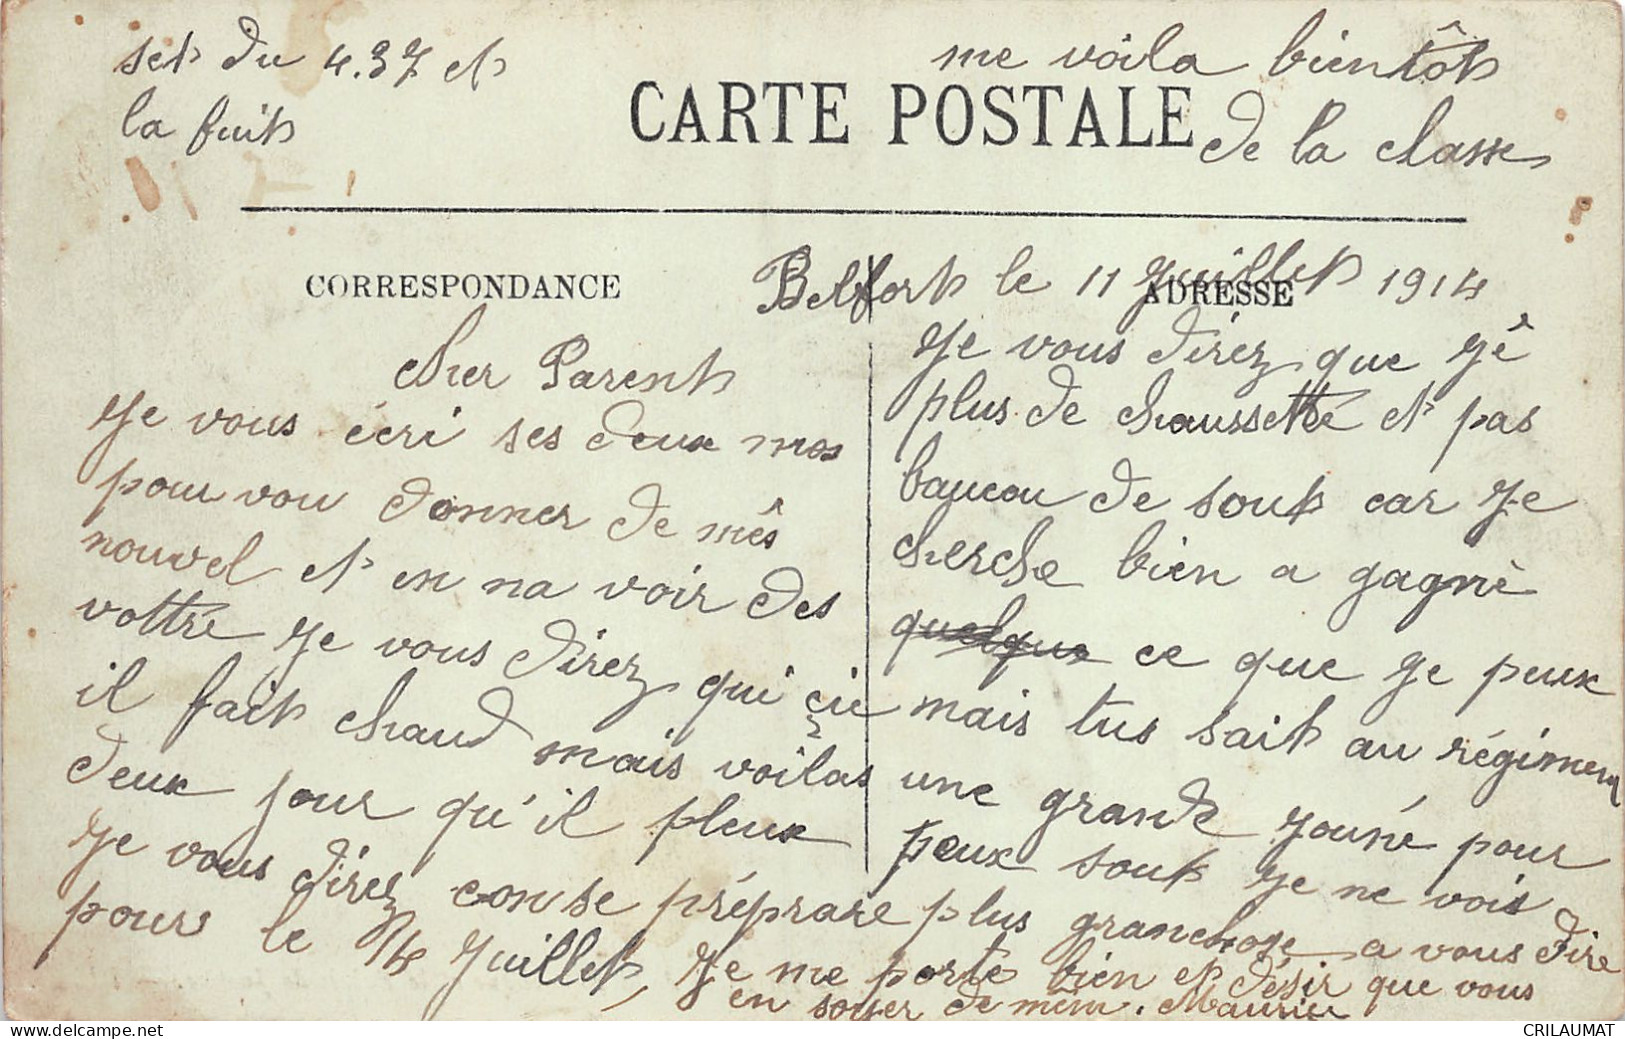 set du 4.37 et
la fuit
me voila bientôt
de la classe
CARTE POSTALE
CORRESPONDANCE
ADRESSE
Belfort le 11 Juillet 1914
Cher Parent
Je vous écri ses deux mos
pour vou donner de mês
nouvel et en na voir des
vottre Je vous direz qui çie
il fait chaud mais voilas
deux jour qu'il pleux
Je vous direz con se préprare
pours le 14 Juillet, Je me porte bien et désir que vous
en soyer de mêm. Maurice
Je vous direz que Jê
plus de chaussette et pas
baucou de sout car Je
cherche bien a gagnè
quelque ce que Je peux
mais tus sait au régimen
une grande Jouné pour
peux sout Je ne vois
plus granchoge a vous dire
CRILAUMAT